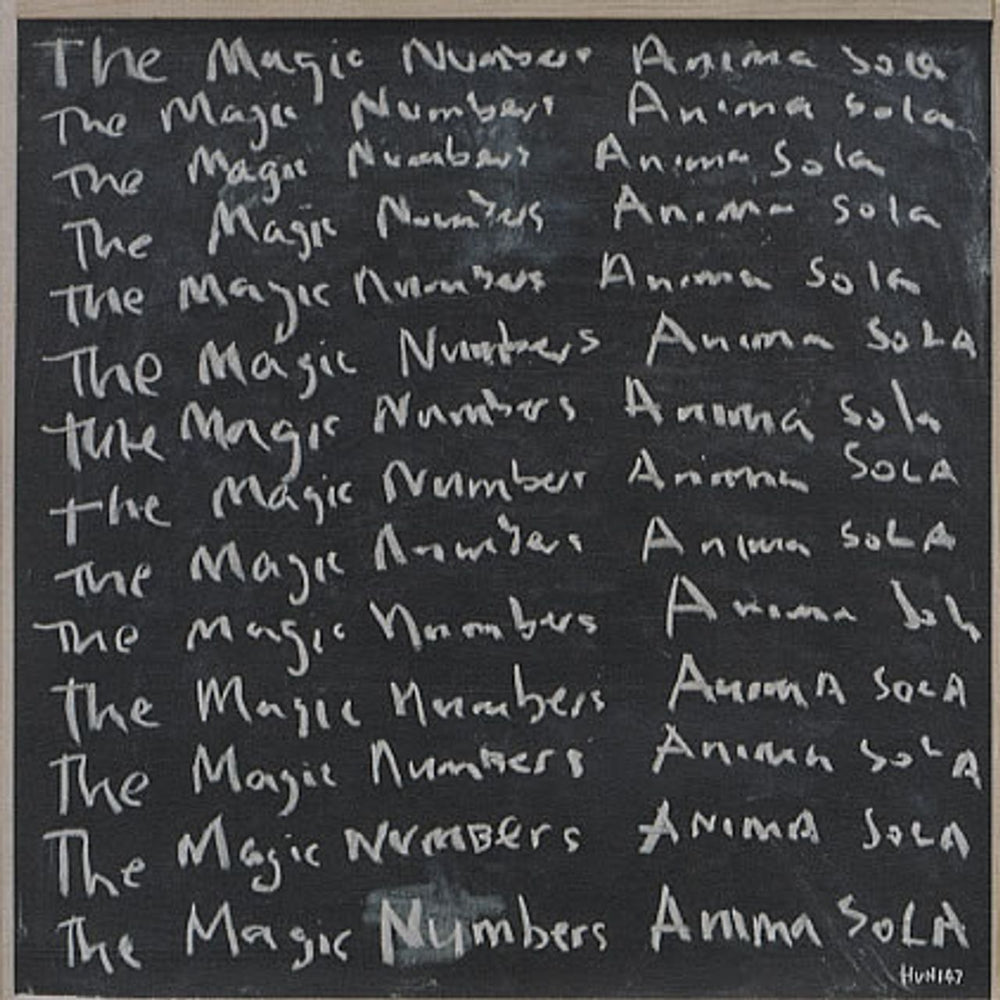 The Magic Numbers Anima Sola
The Magic Numbers Anima Sola
The Magic Numbers Anima Sola
The Magic Numbers Anima Sola
The Magic Numbers Anima Sola
The Magic Numbers Anima SOLA
The Magic Numbers Anima Sola
The Magic Numbers Anima SOLA
The Magic Numbers Anima SOLA
The Magic Numbers Anima Sola
The Magic Numbers AnimA SOLA
The Magic Numbers Anima SOLA
The Magic NumBers ANIMA SOLA
The Magic Numbers Anima SOLA
HUN147